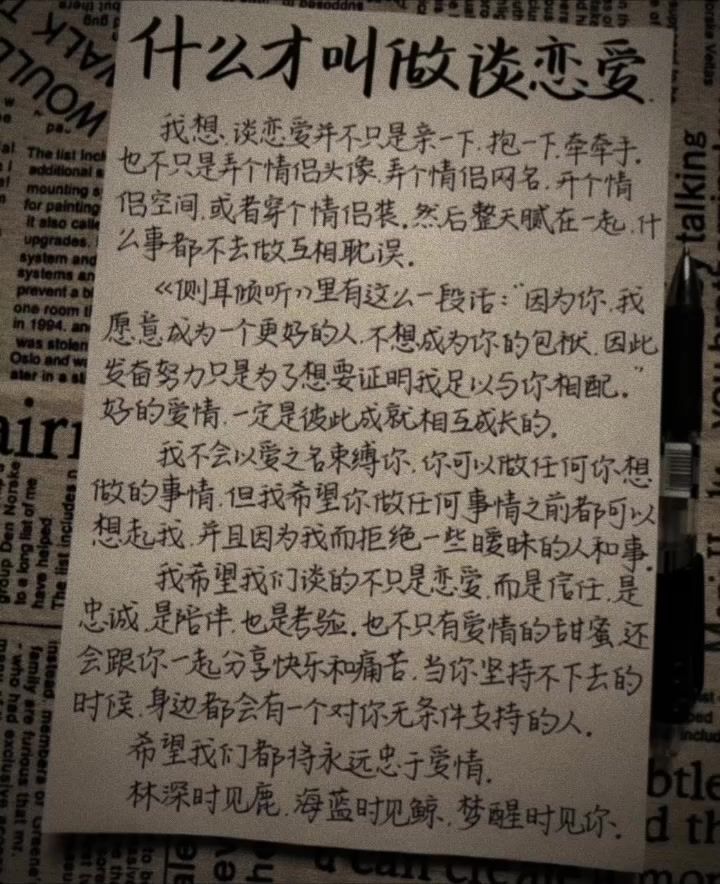 什么才叫做谈恋爱
我想、谈恋爱并不只是亲一下.抱一下.牵牵手.
也不只是弄个情侣头像.弄个情侣网名.开个情
侣空间.或者穿个情侣装.然后整天腻在一起.什
么事都不去做互相耽误.
《侧耳倾听》里有这么一段话:“因为你.我
愿意成为一个更好的人.不想成为你的包袱.因此
发奋努力只是为了想要证明我足以与你相配.”
好的爱情.一定是彼此成就相互成长的.
我不会以爱之名束缚你.你可以做任何你想
做的事情.但我希望你做任何事情之前都可以
想起我.并且因为我而拒绝一些暧昧的人和事.
我希望我们谈的不只是恋爱.而是信任.是
忠诚.是陪伴.也是考验.也不只有爱情的甜蜜.还
会跟你一起分享快乐和痛苦.当你坚持不下去的
时候.身边都会有一个对你无条件支持的人.
希望我们都将永远忠于爱情.
林深时见鹿.海蓝时见鲸.梦醒时见你.
WOULD
WALK T
The list incl
additional s
mounting s
for painting
it also calle
upgrades.
system and
systems an
prevent a bl
one room t
in 1994. an
was stolen
Oslo and wa
ater in a st
airi
group Den Norske
to a long list of me
have helped
The list includes n
instead. members of
family are furious that mr.
- who had exclusive
talking
btle
d th
u can create